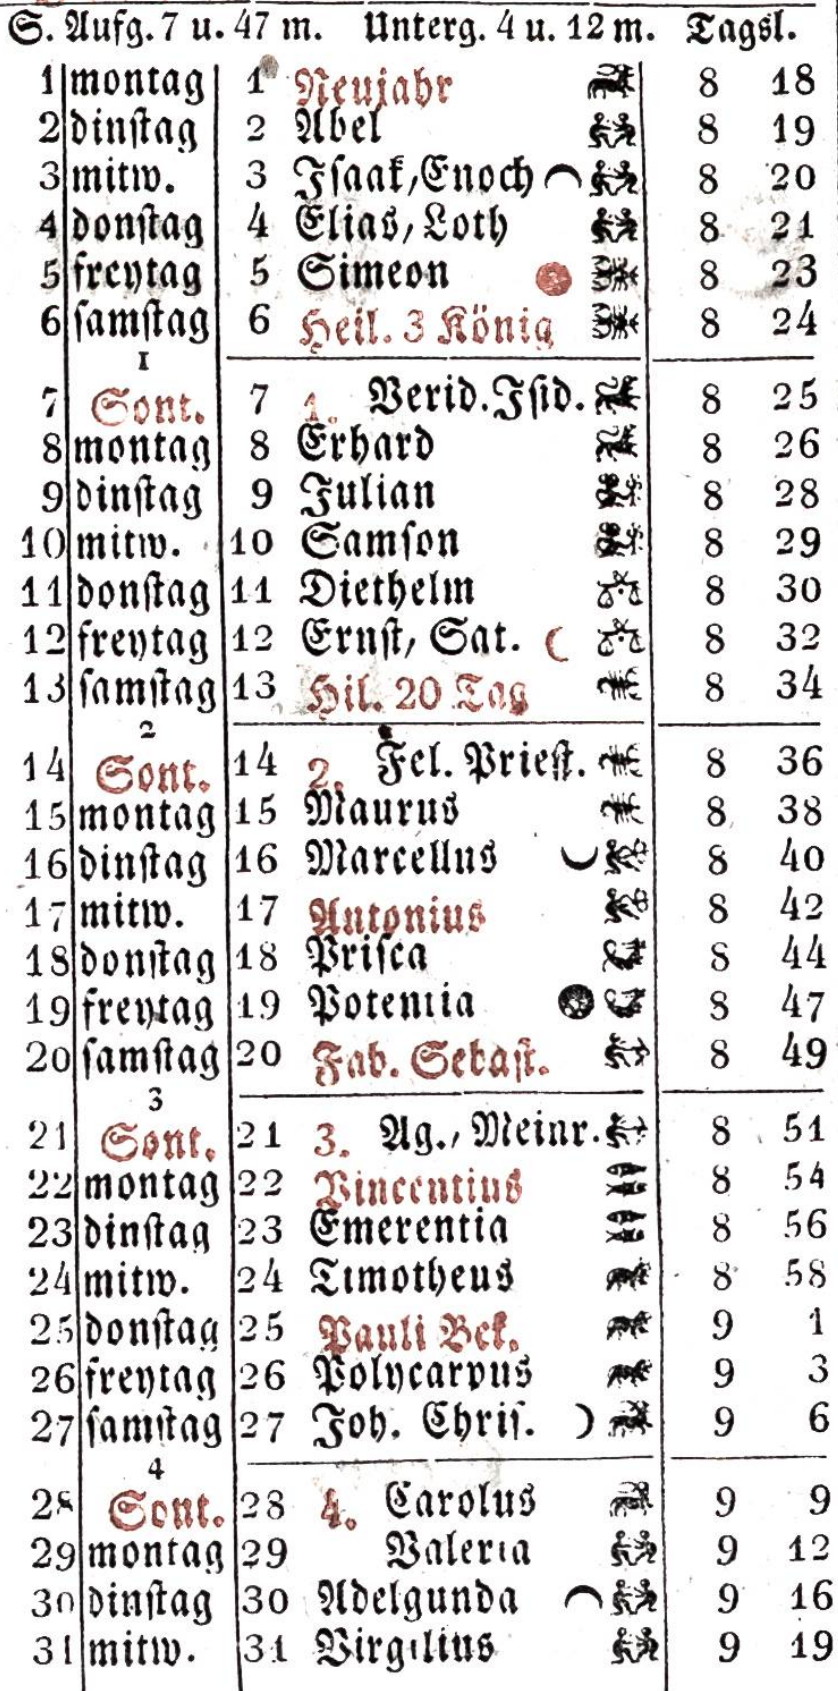 S. Aufg. 7 u. 47 m. Unterg. 4 u. 12 m. Tagsl.
1 montag 1 Neujahr 8 18
2 dinſtag 2 Abel 8 19
3 mitw. 3 Iſaak, Enoch 8 20
4 donſtag 4 Elias, Loth 8 21
5 freytag 5 Simeon 8 23
6 ſamſtag 6 Heil. 3 König 8 24
1
7 Sont. 7 1. Verid. Iſid. 8 25
8 montag 8 Erhard 8 26
9 dinſtag 9 Julian 8 28
10 mitw. 10 Samſon 8 29
11 donſtag 11 Diethelm 8 30
12 freytag 12 Ernſt, Sat. 8 32
13 ſamſtag 13 Hil. 20 Tag 8 34
2
14 Sont. 14 2. Fel. Prieſt. 8 36
15 montag 15 Maurus 8 38
16 dinſtag 16 Marcellus 8 40
17 mitw. 17 Antonius 8 42
18 donſtag 18 Priſca 8 44
19 freytag 19 Potentia 8 47
20 ſamſtag 20 Fab. Sebaſt. 8 49
3
21 Sont. 21 3. Ag., Meinr. 8 51
22 montag 22 Vincentius 8 54
23 dinſtag 23 Emerentia 8 56
24 mitw. 24 Timotheus 8 58
25 donſtag 25 Pauli Bek. 9 1
26 freytag 26 Polycarpus 9 3
27 ſamſtag 27 Joh. Chriſ. 9 6
4
28 Sont. 28 4. Carolus 9 9
29 montag 29 Valeria 9 12
30 dinſtag 30 Adelgunda 9 16
31 mitw. 31 Virgilius 9 19